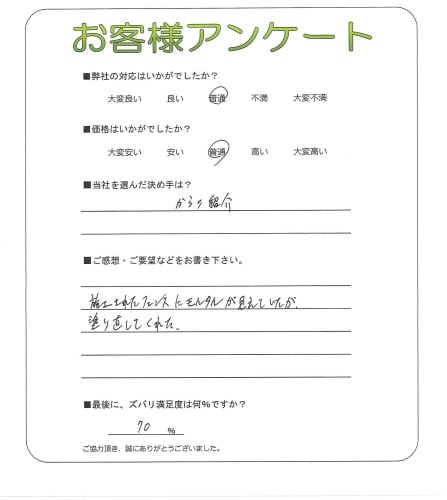 お客様アンケート
■弊社の対応はいかがでしたか?
大変良い 良い 普通 不満 大変不満
■価格はいかがでしたか?
大変安い 安い 普通 高い 大変高い
■当社を選んだ決め手は?
から 紹介
■ご感想・ご要望などをお書き下さい。
施工されたフェンスにモルタルが見えていたが、
塗り直してくれた。
■最後に、ズバリ満足度は何%ですか?
70 %
ご協力頂き、誠にありがとうございました。